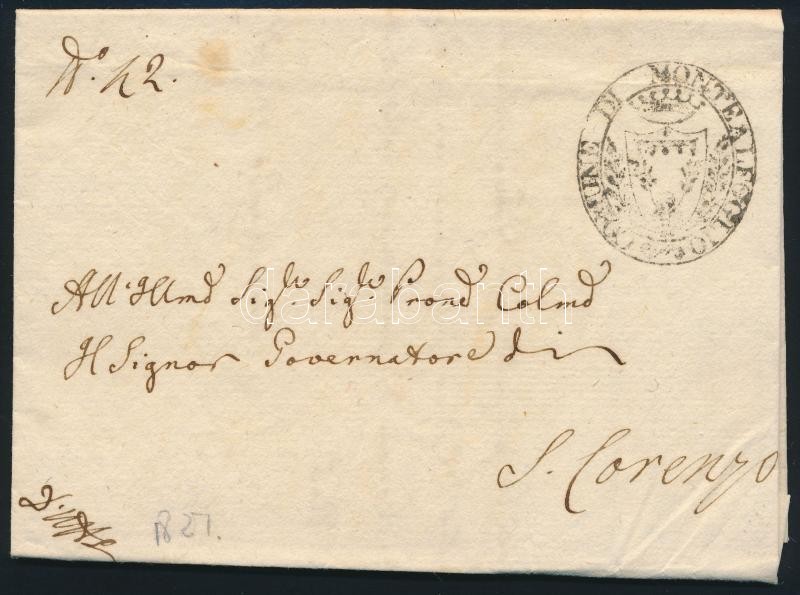 N.° 42.
COMUNE DI MONTEALFOGLIO
All' Illmo Sig.r Sig.r Prone Colmo
Il Signor Governatore di
S. Lorenzo
D'Uffo
1827.
darabanth